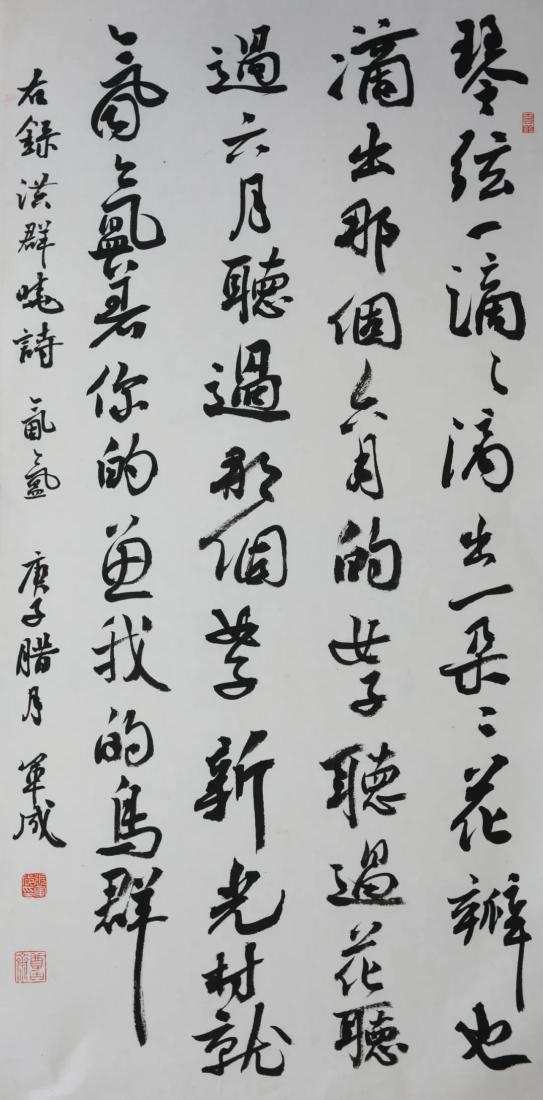 琴弦一滴〻滴出一朵〻花瓣也
滴出那個六月的女子聽過花聽
過六月聽過那個女子新光村就
氤氳着你的魚我的鳥群
右錄洪群曉詩 氤氳 庚子腊月 軍成